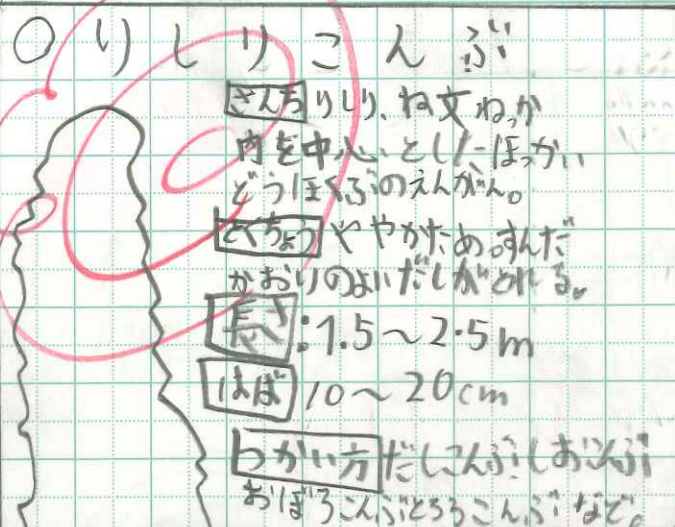 ○りしりこんぶ
さんち りしり、ね文ねっか
内を中心としたほっかい
どうほくぶのえんがん。
とくちょう ややかため。すんだ
かおりのよいだしがとれる。
長さ:1.5～2.5m
はば 10～20cm
つかい方 だしこんぶ、しおこんぶ
おぼろこんぶとろろこんぶなど。